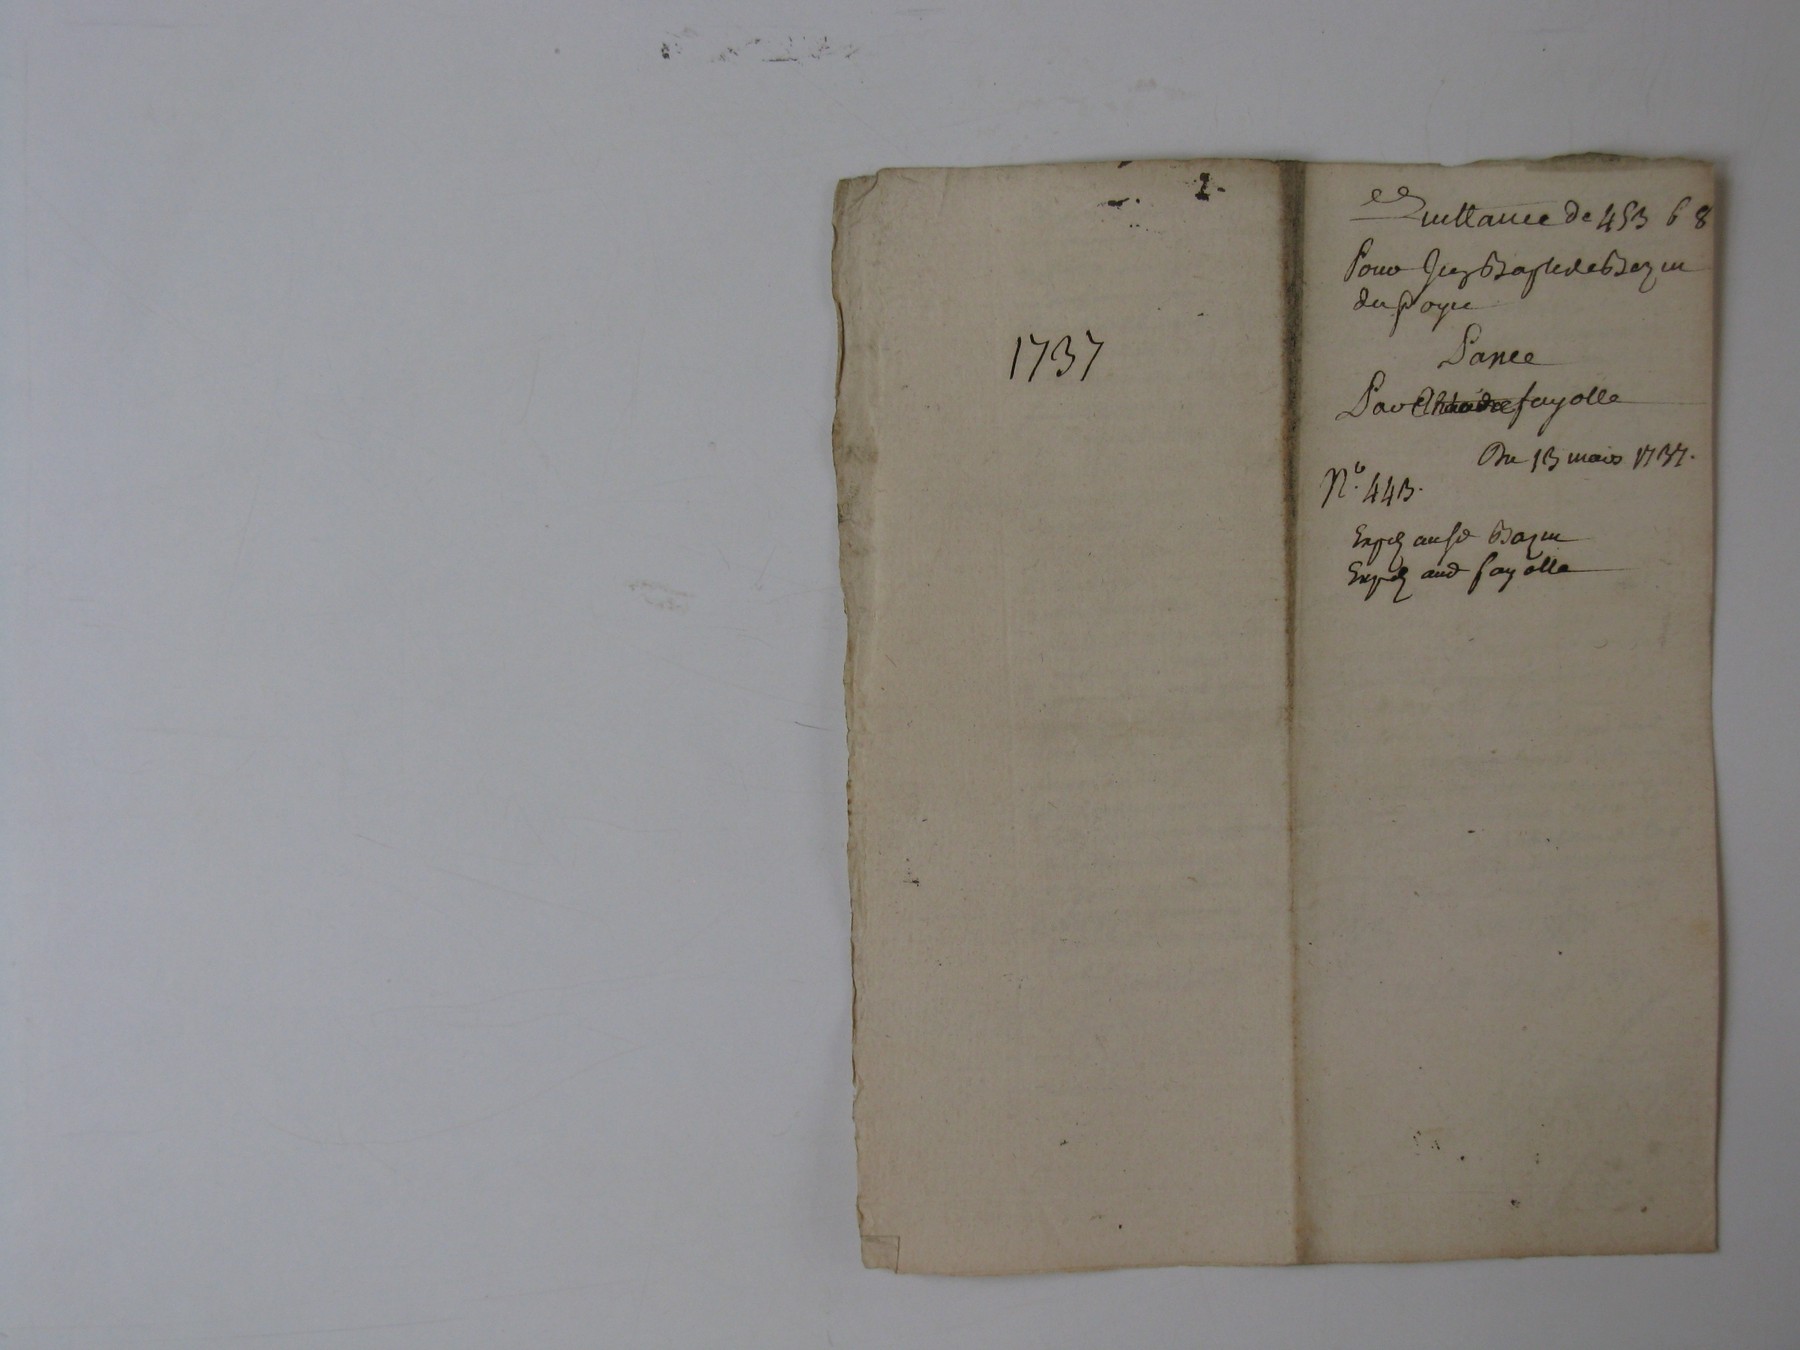 1737
Quittance de 453 6 8
Pour Jean Baptiste Bazin
du Poyre
Passée
Par fayolle
Du 13 mars 1737.
N.o 443.
Exped au sr Bazin
Exped aud fayolle